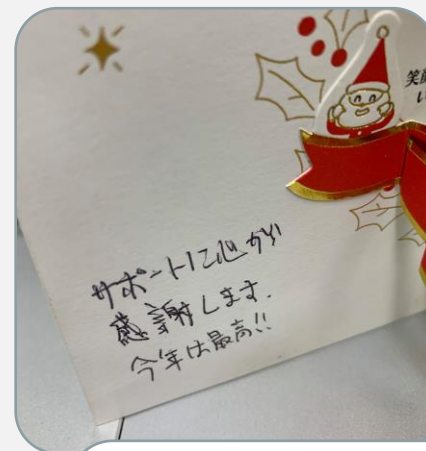 笑顔
い
サポートに心から
感謝します.
今年は最高!!